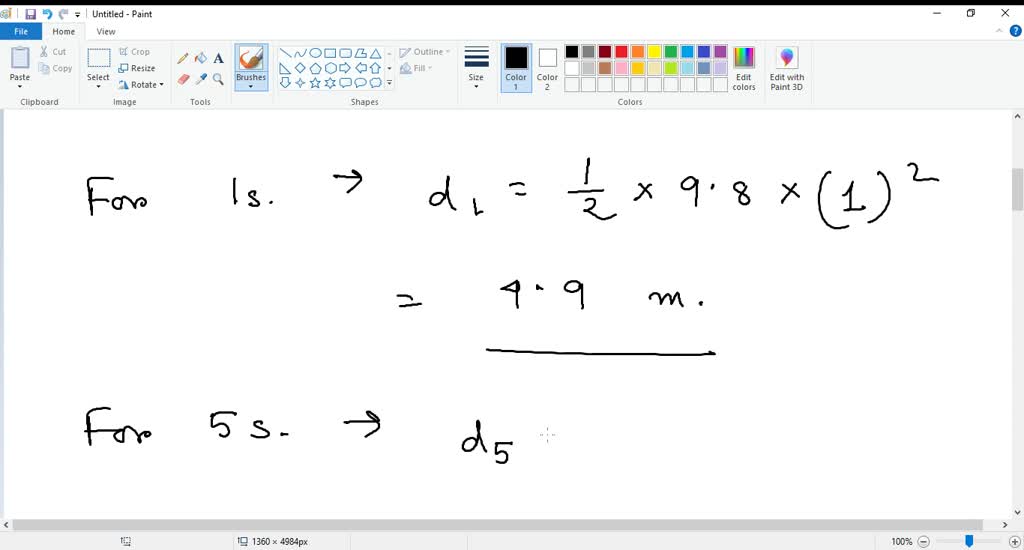 Untitled - Paint
File Home View
Paste Cut Copy Clipboard
Select Crop Resize Rotate Image
Tools
Brushes
Shapes Outline Fill
Size
Color 1 Color 2 Edit colors Colors
Edit with Paint 3D
For 1s. → d₁ = 1/2 × 9.8 × (1)²
= 4.9 m.
For 5s. → d₅
1360 × 4984px 100%